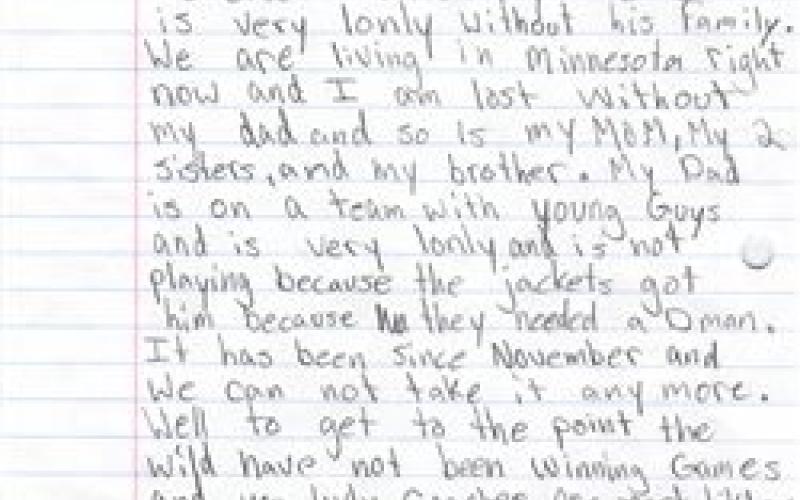 is very lonly without his Family.
We are living in Minnesota right
now and I am lost without
my dad and so is my MOM, My 2
sisters, and my brother. My Dad
is on a team with young Guys
and is very lonly and is not
playing because the jackets got
him because they needed a Dman.
It has been since November and
We can not take it any more.
Well to get to the point the
wild have not been winning Games
and